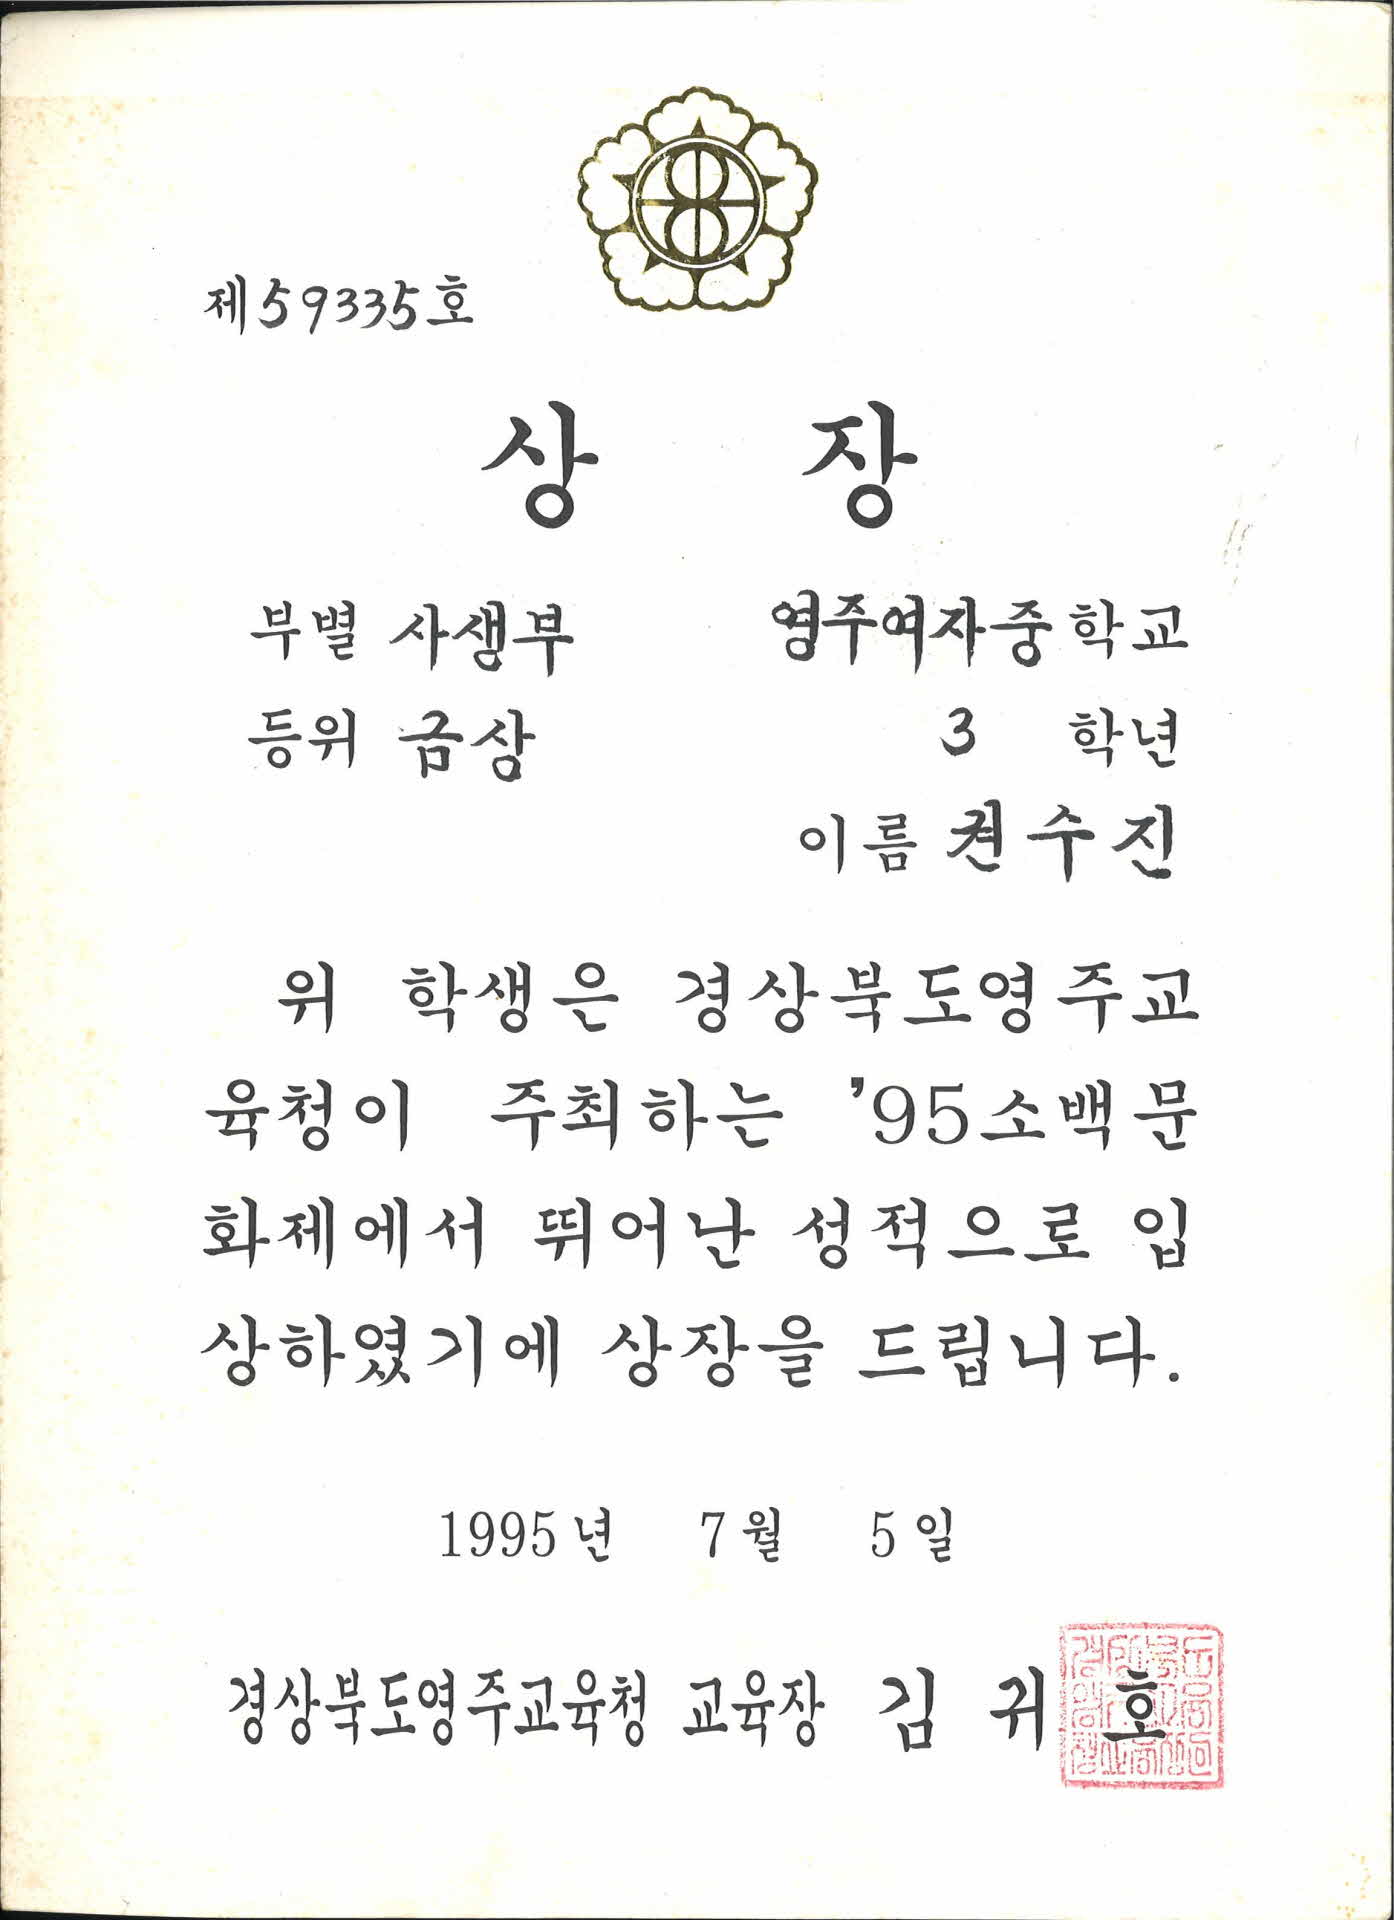 제59335호
상 장
부별 사생부 영주여자중학교
등위 금상 3 학년
이름 권수진
위 학생은 경상북도영주교
육청이 주최하는 '95소백문
화제에서 뛰어난 성적으로 입
상하였기에 상장을 드립니다.
1995년 7월 5일
경상북도영주교육청 교육장 김 귀 호